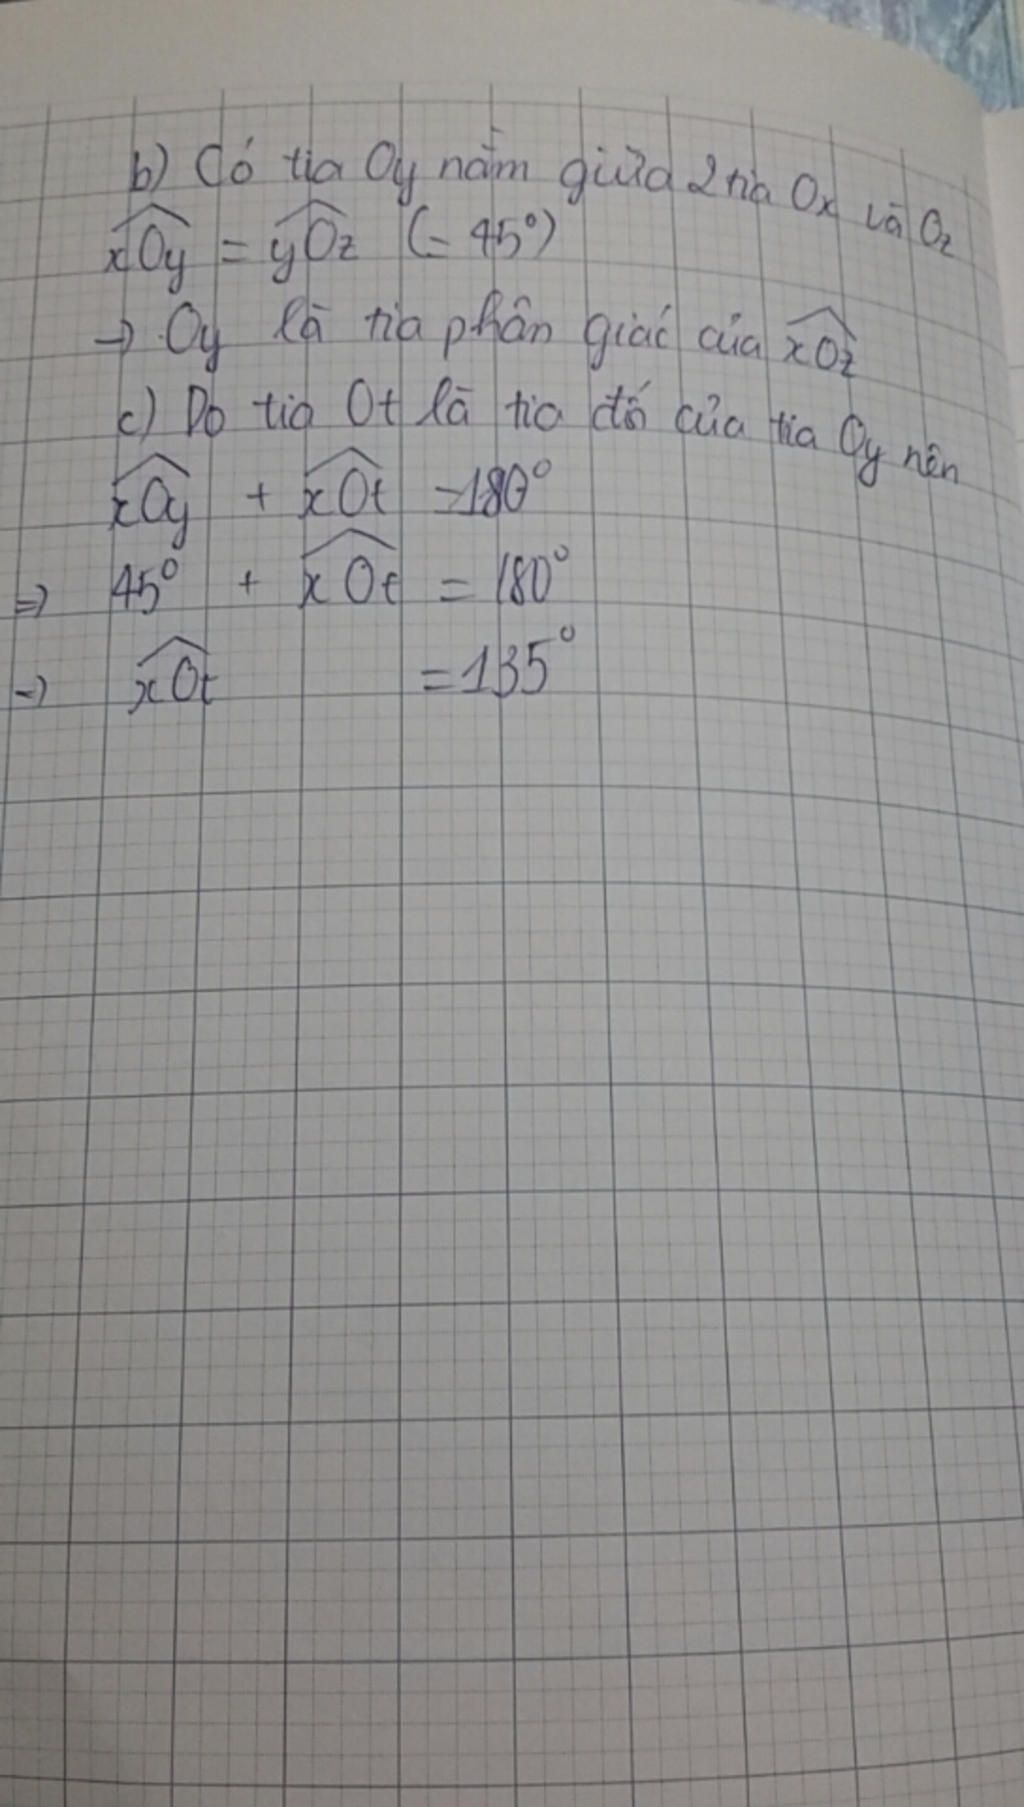 b) Có tia Oy nằm giữa 2 tia Ox và Oz
xOy = yOz (= 45°)
→ Oy là tia phân giác của xOz
c) Do tia Ot là tia đối của tia Oy nên
xOy + xOt = 180°
⇒ 45° + xOt = 180°
→ xOt = 135°